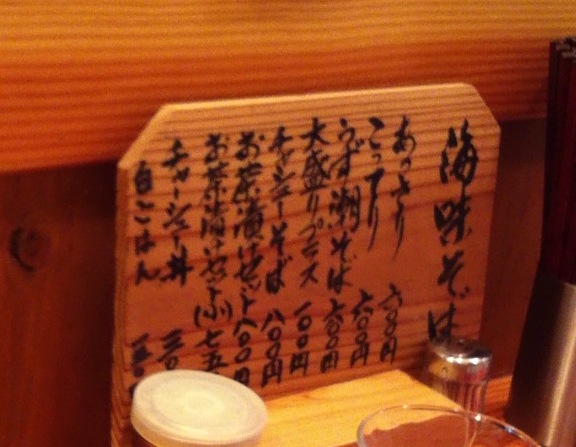 海味そば
あっさり 六〇〇円
こってり 六〇〇円
うず潮そば 七〇〇円
大盛りプラス 一〇〇円
チャーシューそば 八〇〇円
お茶漬けセット 八〇〇円
お茶漬けセット(小) 七五
チャーシュー丼 三〇
白ごはん 一五〇